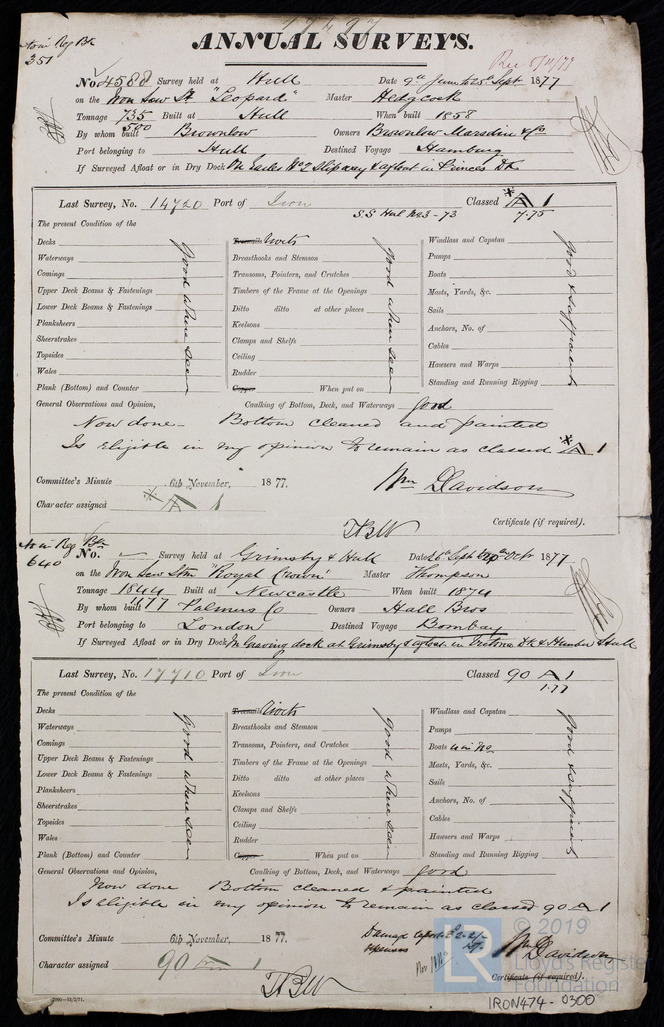 17497
ANNUAL SURVEYS.
No in Reg Bk
351
Rec 5/11/77
No. 4588 Survey held at Hull Date 9th June to 25th Sept 1877
on the Iron Screw Sr "Leopard" Master Hedgcock
Tonnage 735 Built at Hull When built 1858
500
By whom built Brownlow Owners Brownlow Marsdin & Co
Port belonging to Hull Destined Voyage Hamburg
If Surveyed Afloat or in Dry Dock On Earles No 2 Slipway & afloat in Princes Dk
Last Survey, No. 14720 Port of Iron Classed * A 1
S.S Hul No 3 - 73 7.75
The present Condition of the
Decks Treenails Rivets Windlass and Capstan
Waterways Breasthooks and Stemson Pumps
Comings Transoms, Pointers, and Crutches Boats
Upper Deck Beams & Fastenings Timbers of the Frame at the Openings Masts, Yards, &c.
Lower Deck Beams & Fastenings Ditto ditto at other places Sails
Planksheers Keelsons Anchors, No. of
Sheerstrakes Clamps and Shelfs Cables
Topsides Ceiling Hawsers and Warps
Wales Rudder Standing and Running Rigging
Plank (Bottom) and Counter Copper When put on
good where seen
good where seen
good & sufficient
General Observations and Opinion, Caulking of Bottom, Deck, and Waterways good
Now done - Bottom cleaned and painted
Is eligible in my opinion to remain as classed * A 1
Committee's Minute 6th November, 1877.
Wm Davidson
Character assigned * A 1
Certificate (if required).
No in Reg Bk
640
No. Survey held at Grimsby & Hull Date 26th Sept to 20th Oct 1877
on the Iron Screw Str "Royal Crown" Master Thompson
Tonnage 1844 Built at Newcastle When built 1874
1177
By whom built Palmers Co Owners Hall Bros
Port belonging to London Destined Voyage Bombay
If Surveyed Afloat or in Dry Dock In Graving dock at Grimsby & afloat in Victoria Dk & Humber Hull
Last Survey, No. 17710 Port of Iron Classed 90 A 1
1.77
The present Condition of the
Decks Treenails Rivets Windlass and Capstan
Waterways Breasthooks and Stemson Pumps
Comings Transoms, Pointers, and Crutches Boats
Upper Deck Beams & Fastenings Timbers of the Frame at the Openings Masts, Yards, &c.
Lower Deck Beams & Fastenings Ditto ditto at other places Sails
Planksheers Keelsons Anchors, No. of
Sheerstrakes Clamps and Shelfs Cables
Topsides Ceiling Hawsers and Warps
Wales Rudder Standing and Running Rigging
Plank (Bottom) and Counter Copper When put on
good where seen
good where seen
good & sufficient
General Observations and Opinion, Caulking of Bottom, Deck, and Waterways good
Now done Bottom cleaned & painted
Is eligible in my opinion to remain as classed 90 A 1
Committee's Minute 6th November, 1877.
Damage report
expenses
Wm Davidson
Character assigned 90 A 1
Certificate (if required).
© 2019
LR
Lloyd's Register
Foundation
IRON474-0300